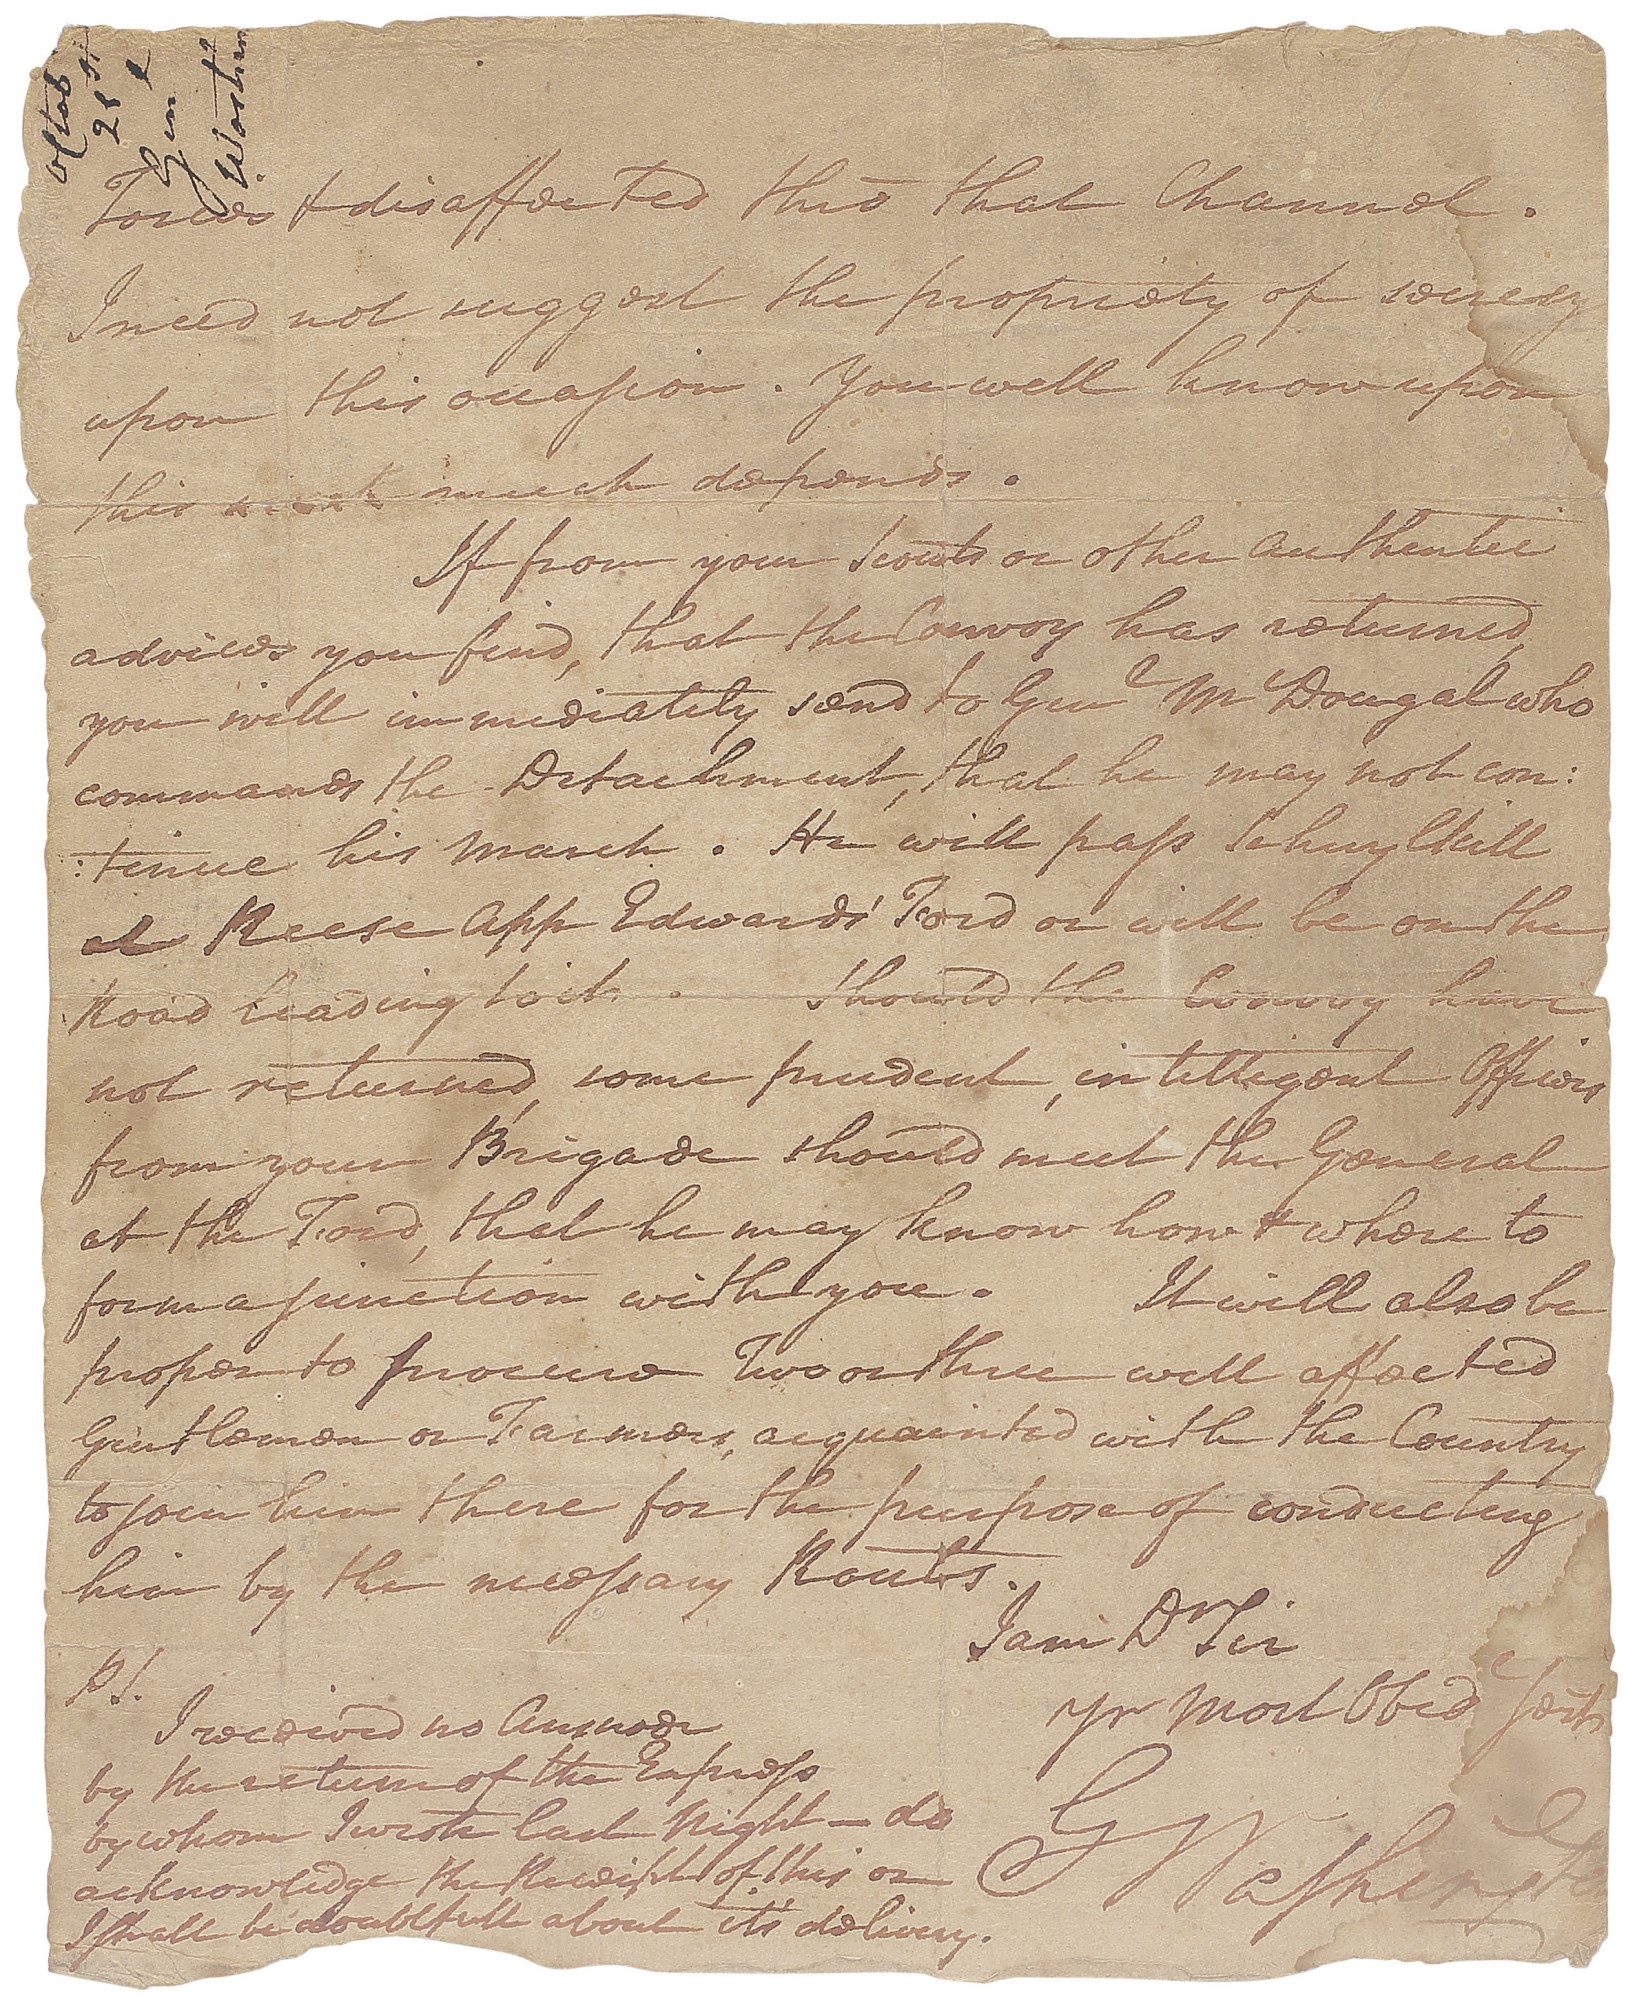 Octob
28th
Genl
Washin
Tories & disaffected thro that Channel.
I need not suggest the propriety of secrecy
upon this occasion. You well know upon
this much depends.
If from your Scouts or other authentic
advices you find, that the Convoy has returned,
you will immediately send to Genl McDougal who
commands the Detachment, that he may not con:
:tinue his March. He will pass Schuylkill
at Reese App Edwards' Ford or will be on the
Road leading to it. Should the Convoy have
not returned, some prudent, intelligent Officers
from your Brigade should meet the General
at the Ford, that he may know how & where to
form a junction with you. It will also be
proper to procure Two or three well affected
Gentlemen or Farmers, acquainted with the Country
to join him there for the purpose of conducting
him by the necessary Routs.
I am Dr Sir
Yr Most Obed Servt
G Washington
PS.
I received no Answer
by the return of the Express
by whom I wrote last Night — do
acknowledge the Receipt of this or
I shall be doubtfull about it's delivery.